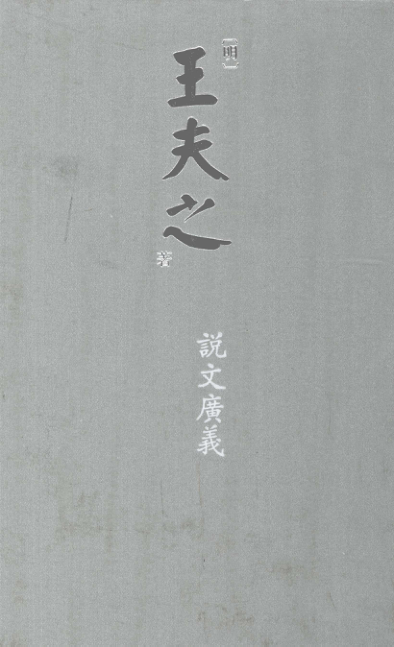 [明]
王夫之
著
説文廣義